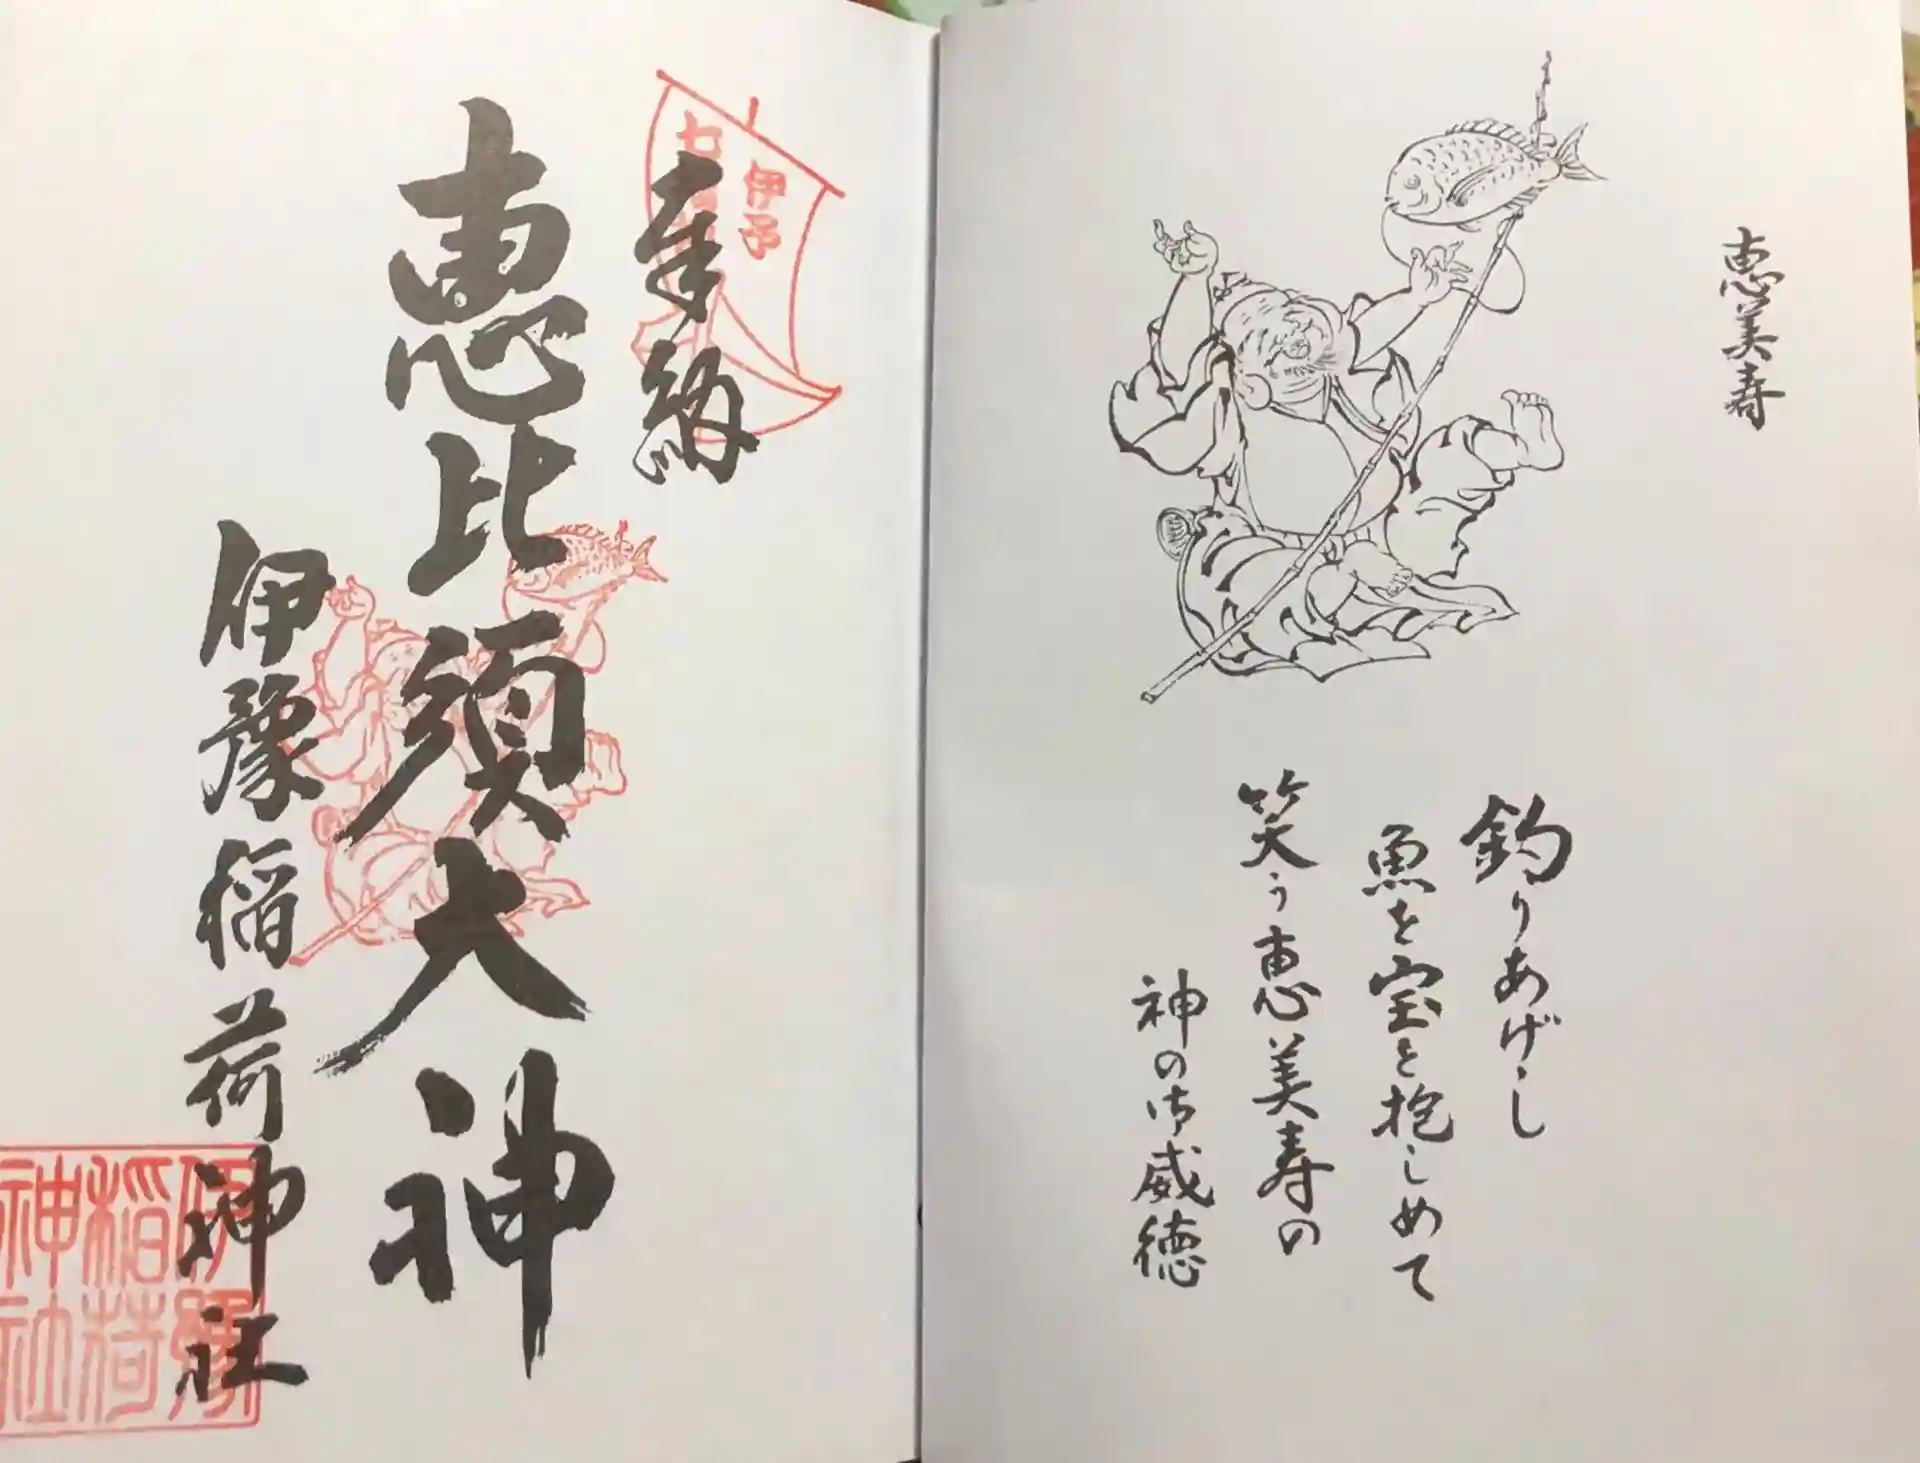 恵美寿
釣りあげし
魚を宝と抱しめて
笑う恵美寿の
神の御威徳
奉納
伊予
七福
恵比須大神
伊豫稲荷神社
伊豫
稲荷
神社